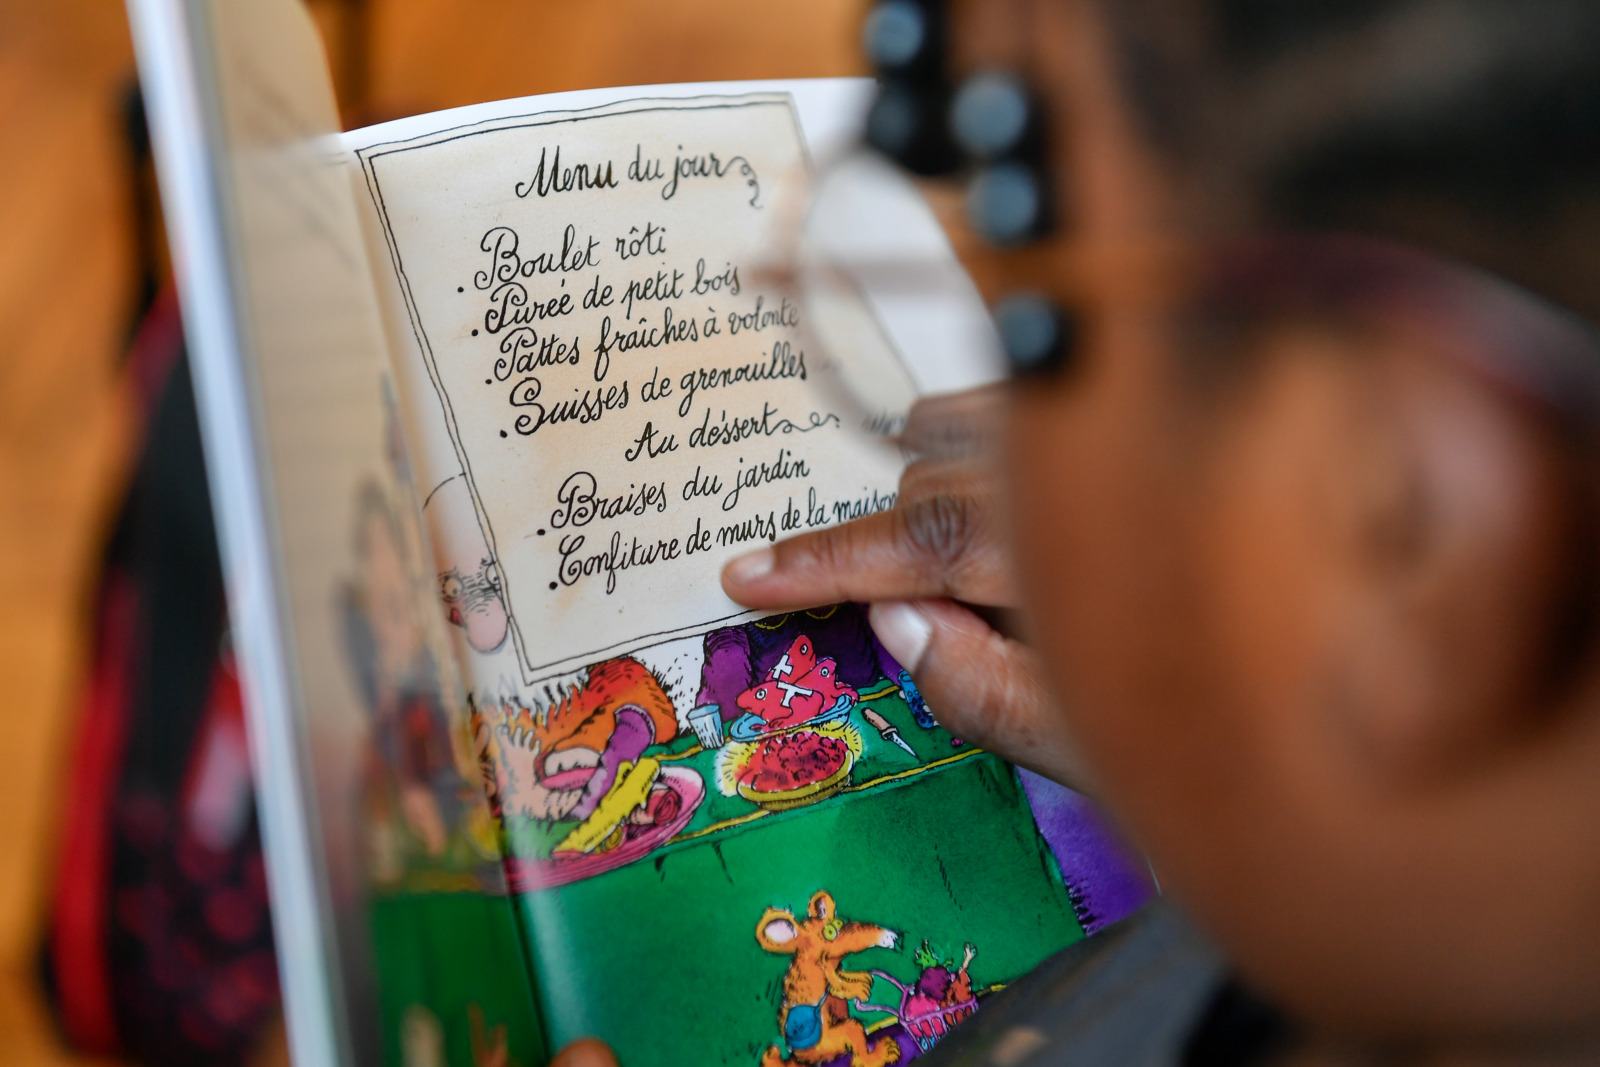 Menu du jour
. Boulet rôti
. Purée de petit bois
. Pattes fraîches à volonté
. Suisses de grenouilles
Au déssert
. Braises du jardin
. Confiture de murs de la maison